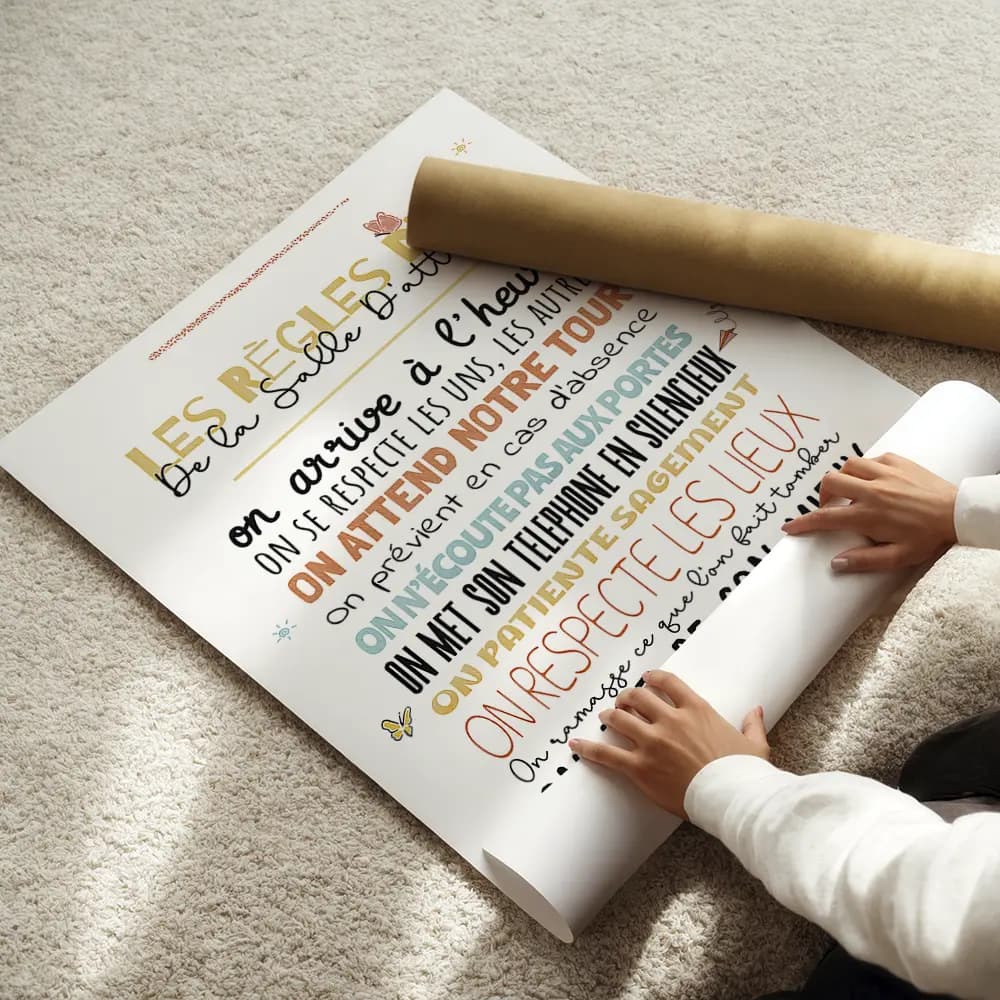 LES RÈGLES
De la Salle D'att
on arrive à l'heu
ON SE RESPECTE LES UNS, LES AUTRE
ON ATTEND NOTRE TOUR
on prévient en cas d'absence
ON N'ÉCOUTE PAS AUX PORTES
ON MET SON TELEPHONE EN SILENCIEUX
ON PATIENTE SAGEMENT
ON RESPECTE LES LIEUX
On ramasse ce que l'on fait tomber